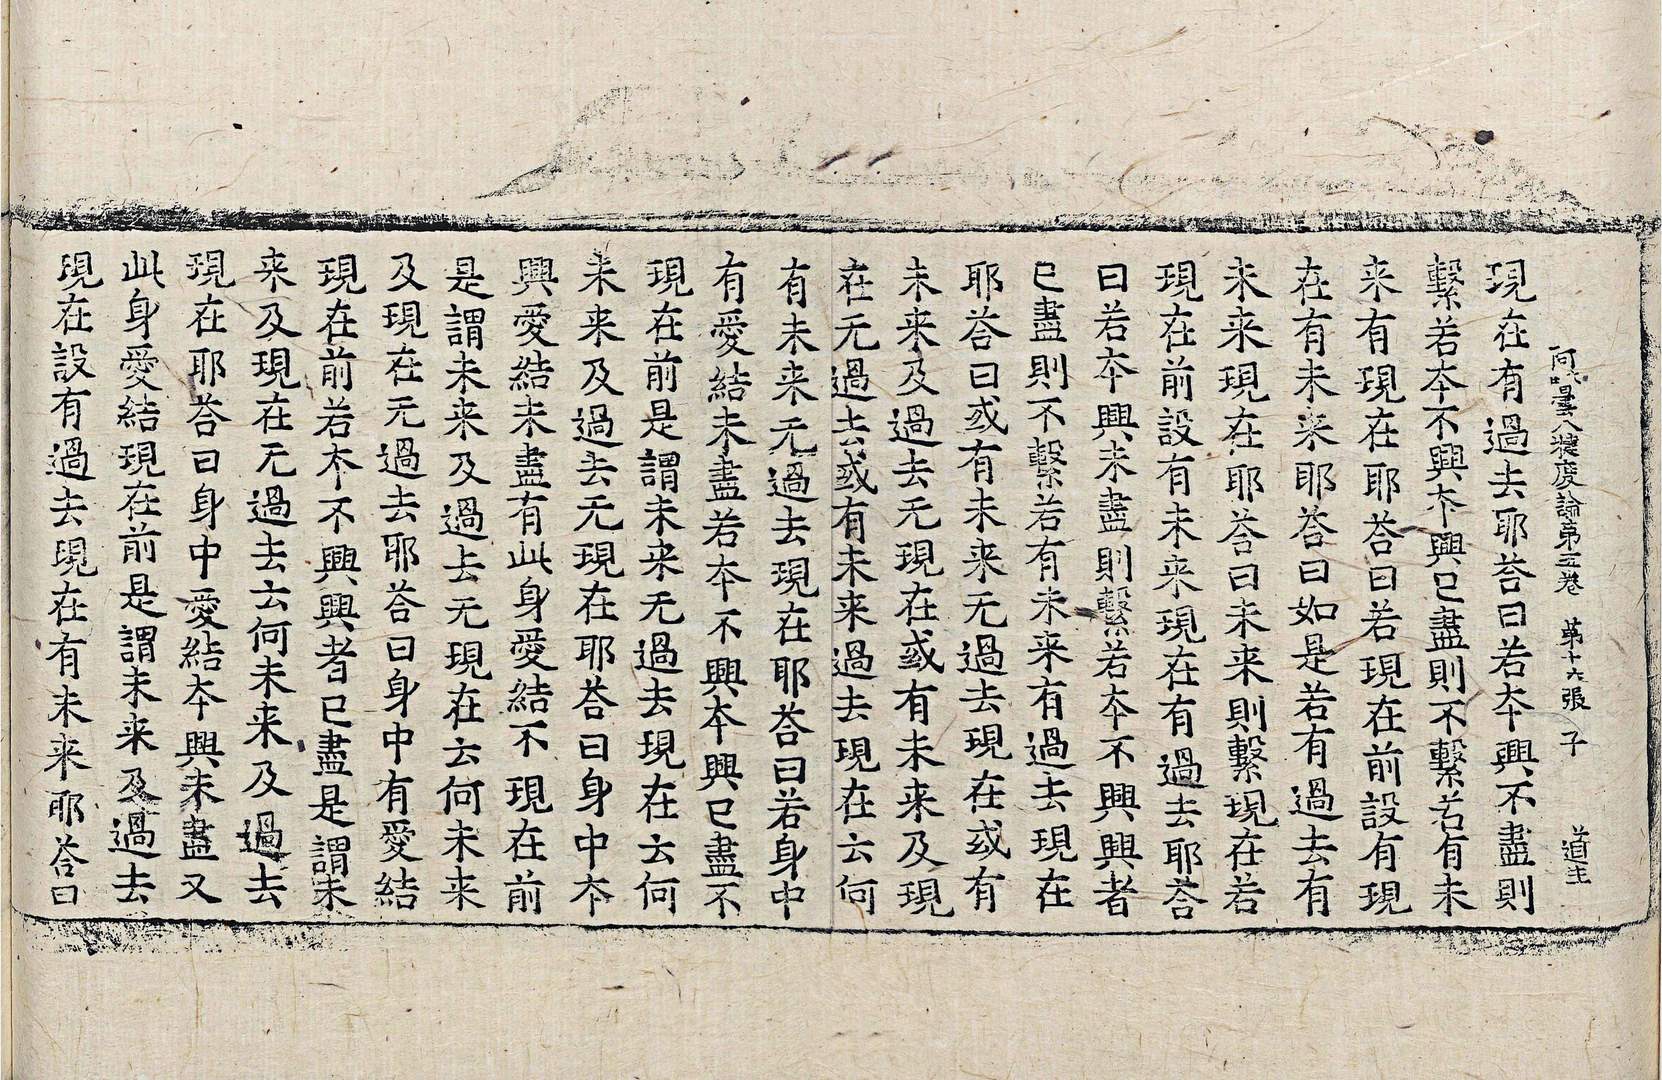 阿毗曇八犍度論第五卷 第十六張 子 道主
現在有過去耶荅曰若夲興不盡則
繫若夲不興夲興已盡則不繫若有未
来有現在耶荅曰若現在前設有現
在有未来耶荅曰如是若有過去有
未来現在耶荅曰未来則繫現在若
現在前設有未来現在有過去耶荅
曰若夲興未盡則繫若夲不興興者
已盡則不繫若有未来有過去現在
耶荅曰或有未来无過去現在或有
未来及過去无現在或有未来及現
在无過去或有未来過去現在云何
有未来无過去現在耶荅曰若身中
有愛結未盡若夲不興夲興已盡不
現在前是謂未来无過去現在云何
未来及過去无現在耶荅曰身中夲
興愛結未盡有此身愛結不現在前
是謂未来及過去无現在云何未来
及現在无過去耶荅曰身中有愛結
現在前若夲不興興者已盡是謂未
来及現在无過去云何未来及過去
現在耶荅曰身中愛結夲興未盡又
此身愛結現在前是謂未来及過去
現在設有過去現在有未来耶荅曰